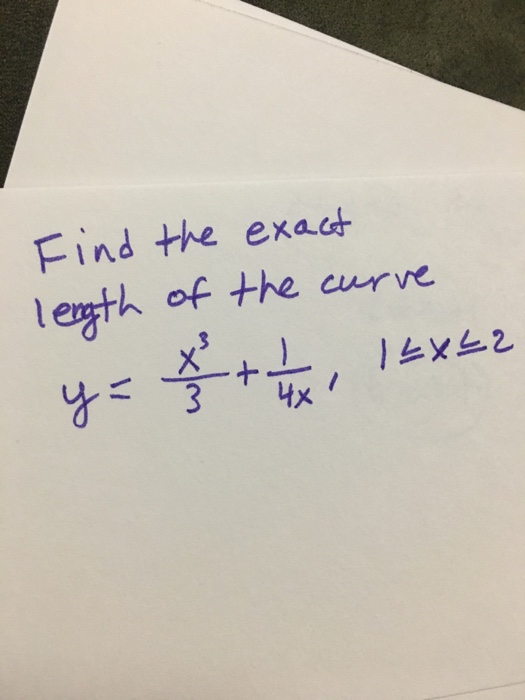 Find the exact
length of the curve
y = x³/3 + 1/4x, 1≤x≤2